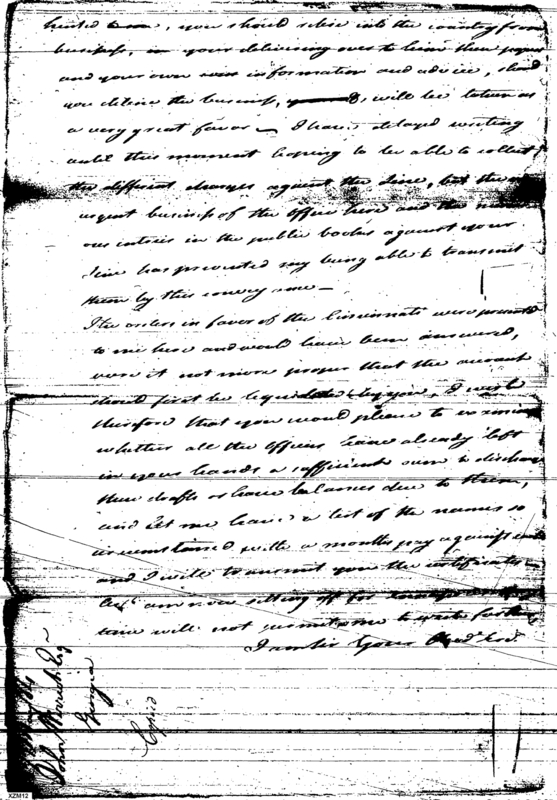 you should retire into the country from
business, in your delivering over to him these papers
and your own information and advice, should
you decline the business, will be taken as
a very great favor – I have delayed writing
until this moment hoping to be able to collect
the different charges against the Line, but the
urgent business of the office here and the
entries in the public books against your
Line has prevented my being able to transmit
them by this conveyance –
The orders in favor of the Cincinnati were presented
to me here and would have been answered,
were it not more proper that the account
should first be by you, I wish
therefore that you would please to
whether all the officers have already left
in your hands a sufficient sum to discharge
their drafts or have balances due to them,
and let me have a list of the names so
circumstanced with a months pay against each
and I will transmit you the certificates
am now setting off for
time will not permit me to write further
I am Sir Your Obedt. Servt.
John Esqr
Georgia
Copied
XZM12